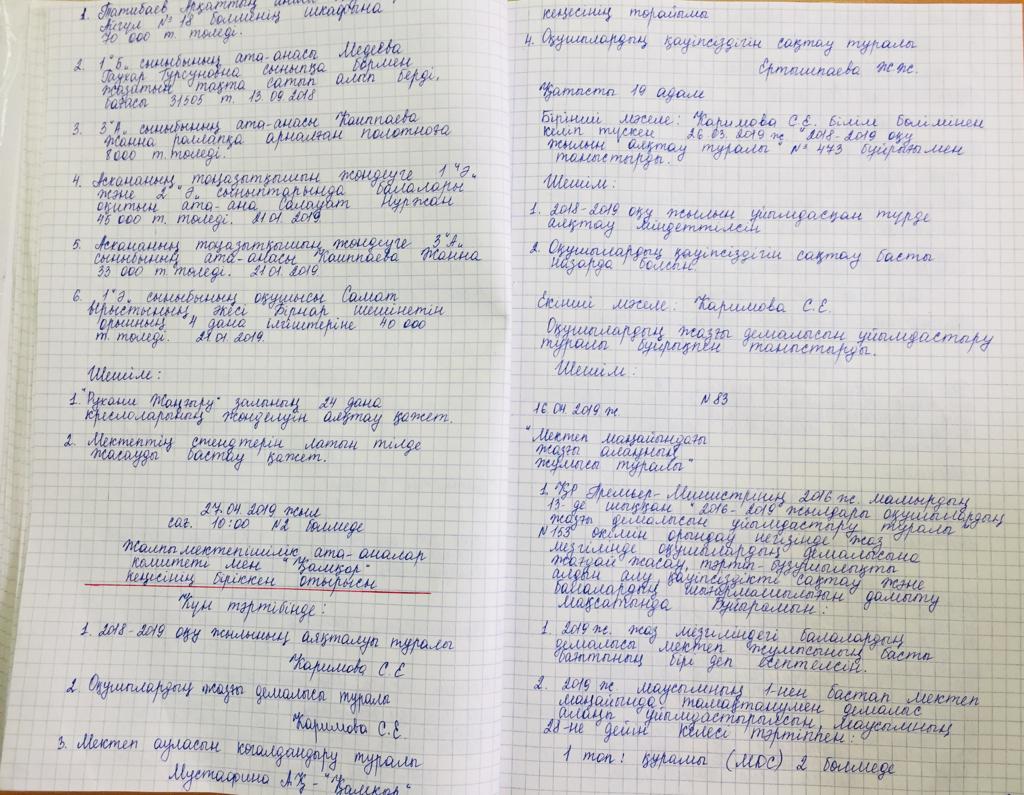 1. Татибаев Арқаттың анасы
Айгүл № 18 бөлменің шкафына
70 000 т. төледі.
2. 1"Б" сыныбының ата-анасы Медеева
Гаухар Турсуновна сыныпқа бормен
жазатын тақта сатып алып берді,
бағасы 31505 т. 13.09.2018
3. 3"А" сыныбының ата-анасы Каиппаева
Жанна ролларқа арналған полотноға
8000 т. төледі.
4. Асхананың тоңазытқышын жөндеуге 1 "Ә"
және 2 "Ә" сыныптарында балалары
оқитын ата-ана Салауат Нұржан
45 000 т. төледі. 21.01.2019
5. Асхананың тоңазытқышын жөндеуге 3"А"
сыныбының ата-анасы Каиппаева Жанна
33 000 т. төледі. 21.01.2019
6. 1"Ә" сыныбының оқушысы Самат
Ырыстының әкесі Бірнар шешінетін
орынның 4 дана ілгіштеріне 40 000
т. төледі. 21.01.2019.
Шешім:
1. "Рухани Жаңғыру" залының 24 дана
креслоларының жөнделуін аяқтау қажет.
2. Мектептің стендтерін латын тілде
жасауды бастау қажет.
27.04.2019 жыл
сағ. 10:00 №2 бөлмеде
Жалпымектепішілік ата-аналар
комитеті мен "Қамқор"
кеңесінің біріккен отырысы
Күн тәртібінде:
1. 2018-2019 оқу жылының аяқталуы туралы
Каримова С.Е
2. Оқушылардың жазғы демалысы туралы
Каримова С.Е.
3. Мектеп ауласын көгалдандыру туралы
Мустафина А.Қ - "Қамқор"
кеңесінің төрайымы
4. Оқушылардың қауіпсіздігін сақтау туралы
Ертышпаева Ж.Ж.
Қатысты 19 адам
Бірінші мәселе: Каримова С.Е. Білім бөлімінен
келіп түскен 26.03.2019 ж "2018-2019 оқу
жылын аяқтау туралы" № 473 бұйрығымен
таныстырды.
Шешім:
1. 2018-2019 оқу жылын ұйымдасқан түрде
аяқтау міндеттелсін
2. Оқушылардың қауіпсіздігін сақтау басты
назарда болсын.
Екінші мәселе: Каримова С.Е.
Оқушылардың жазғы демалысын ұйымдастыру
туралы бұйрықпен таныстырды.
Шешім:
№ 83
16.04.2019 ж.
"Мектеп маңайындағы
жазғы алаңның
жұмысы туралы"
1. ҚР Премьер-Министрінің 2016 ж. мамырдың
13-де шыққан "2016-2019 жылдары оқушылардың
жазғы демалысын ұйымдастыру туралы"
№ 153 өкілін орындау негізінде жаз
мезгілінде оқушылардың демалысына
жағдай жасау, тәртіп-бұзушылықты
алдын алу, қауіпсіздікті сақтау және
балалардың шығармашылығын дамыту
мақсатында Бұйырамын:
1. 2019 ж. жаз мезгіліндегі балалардың
демалысы мектеп жұмысының басты
бағытының бірі деп есептелсін.
2. 2019 ж маусымның 1-нен бастап мектеп
маңайында тамақтанумен демалыс
алаңы ұйымдастырылсын, маусымның
28-не дейін келесі тәртіппен:
1 топ: құрамы (МДС) 2 бөлмеде